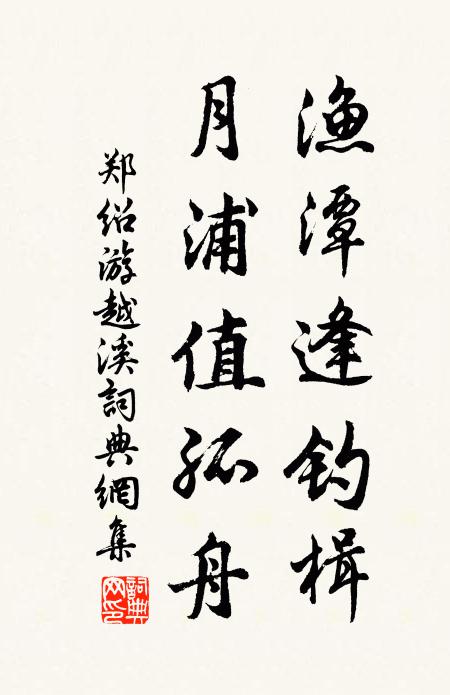 渔潭逢钓楫
月浦值孤舟
郑绍游越溪词典網集
詞典網印